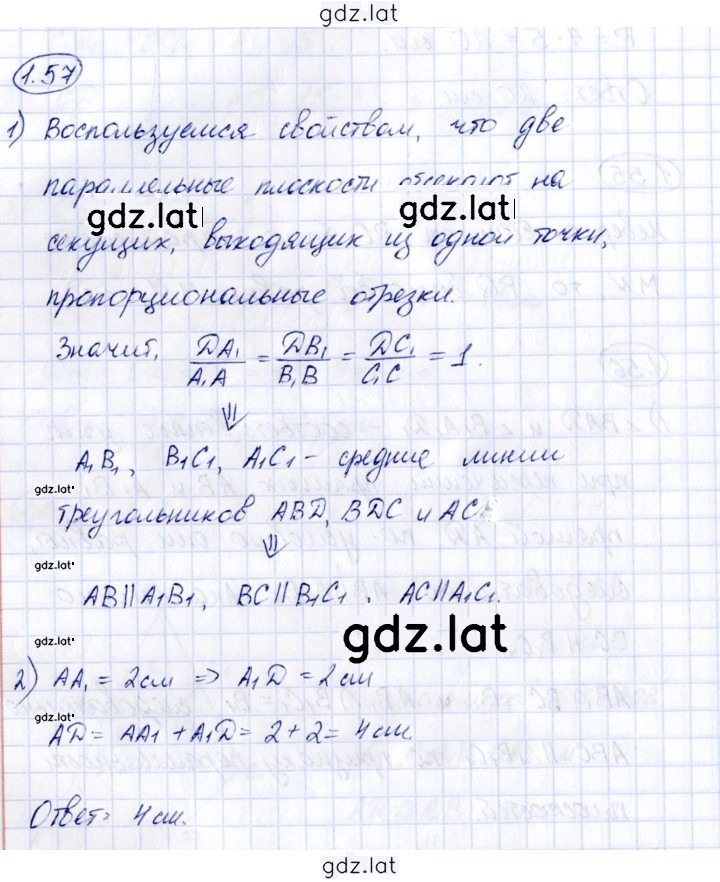 gdz.lat
1.57
1) Воспользуемся свойством, что две
параллельные плоскости отсекают на
gdz.lat gdz.lat
секущих, выходящих из одной точки,
пропорциональные отрезки.
Значит, DA₁/A₁A = DB₁/B₁B = DC₁/C₁C = 1.
⇓
A₁B₁, B₁C₁, A₁C₁ - средние линии
gdz.lat
треугольников ABD, BDC и AC
⇓
gdz.lat
AB||A₁B₁, BC||B₁C₁, AC||A₁C₁.
gdz.lat
gdz.lat
2) AA₁ = 2см => A₁D = 2см
gdz.lat
AD = AA₁ + A₁D = 2 + 2 = 4см.
Ответ: 4см.
gdz.lat